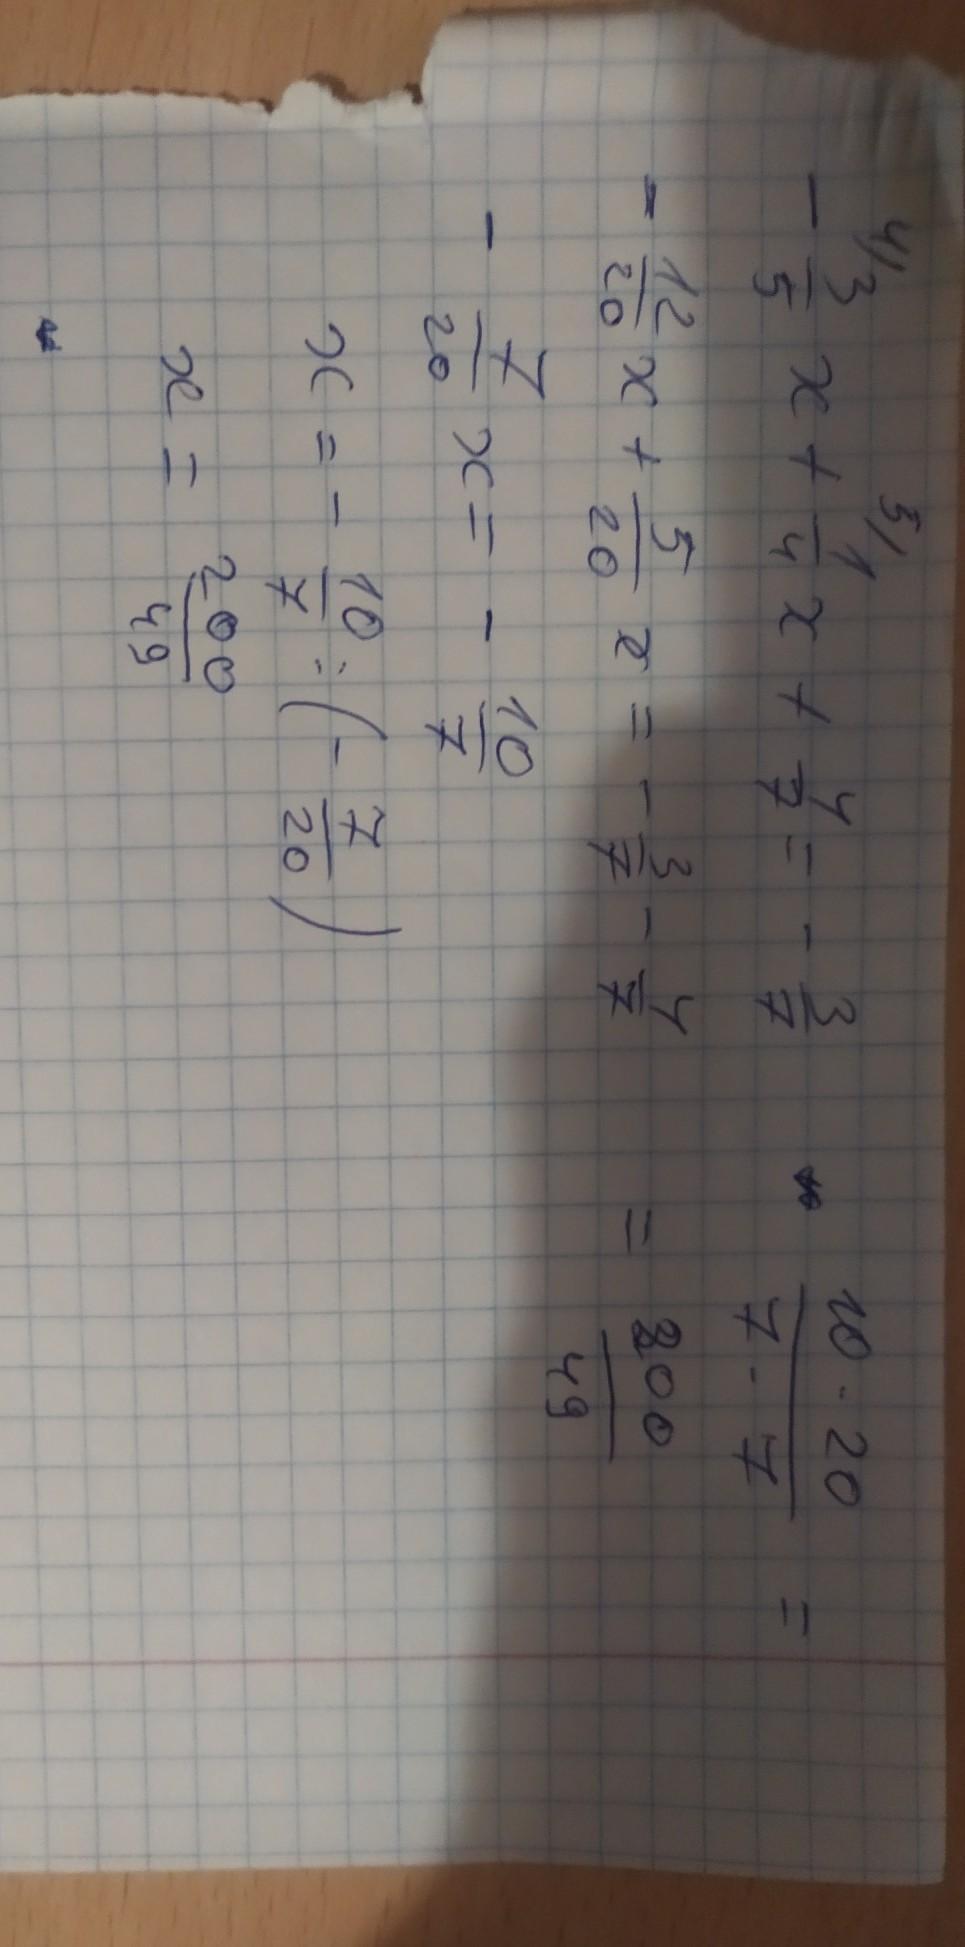 4/ 3/5 x + 5/ 1/4 x + 4/7 = - 3/7
- 12/20 x + 5/20 x = - 3/7 - 4/7
- 7/20 x = - 10/7
x = - 10/7 : (- 7/20)
x = 200/49
10 · 20 / 7 · 7 =
= 200/49